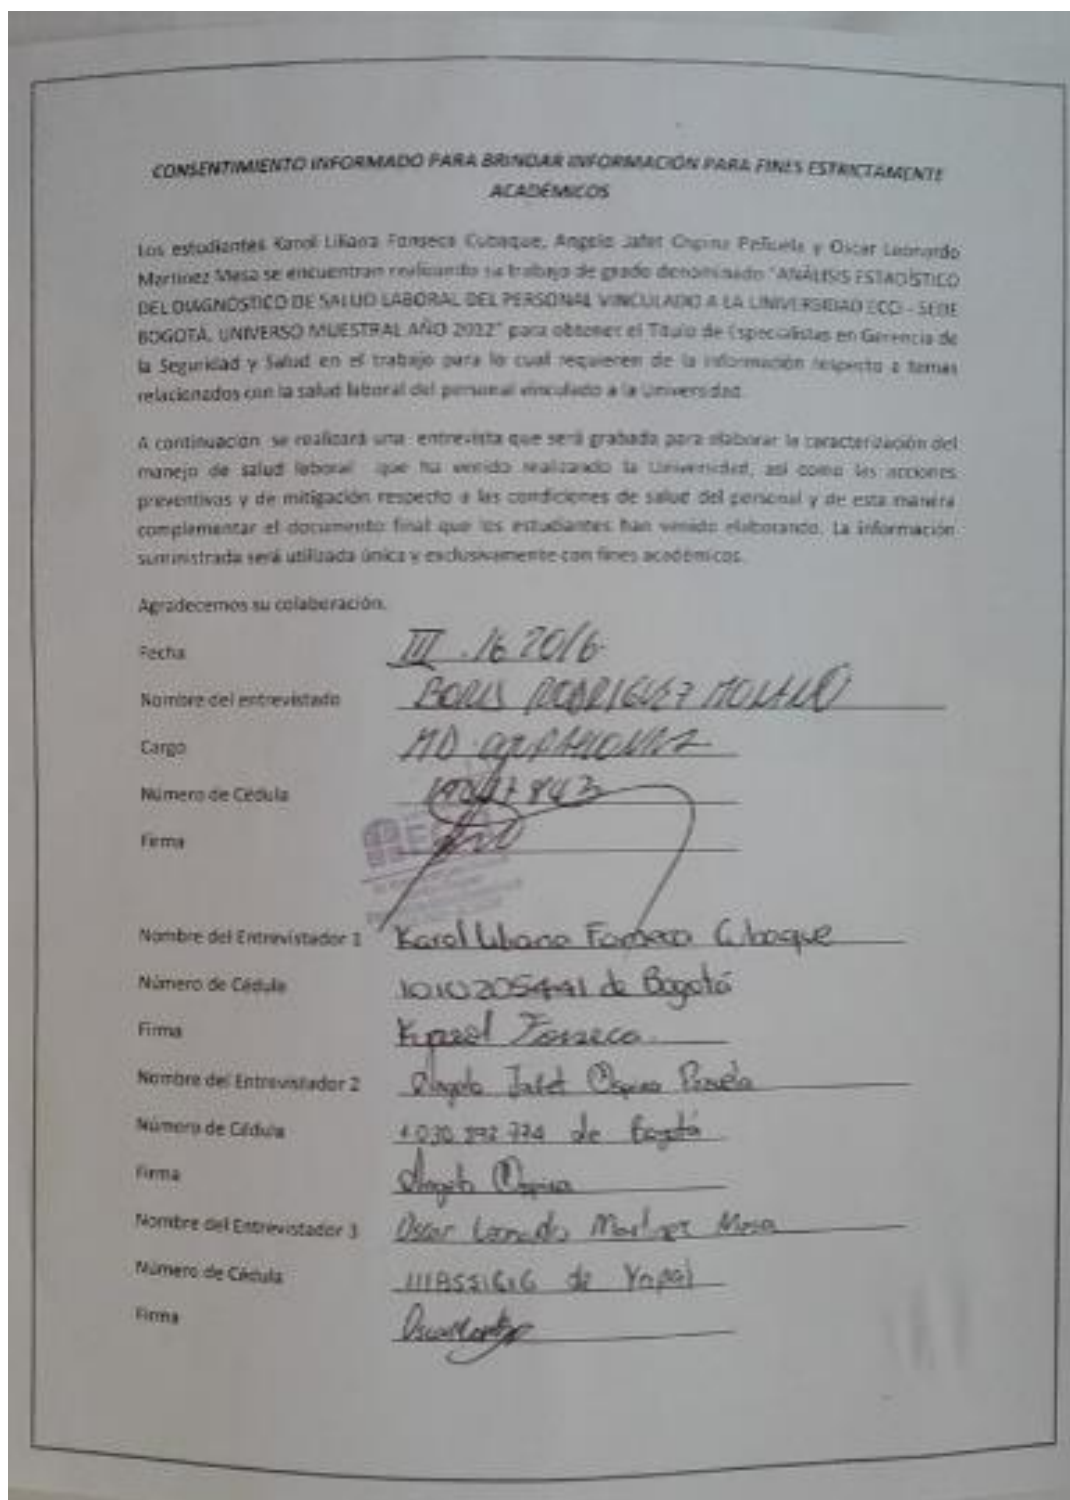 CONSENTIMIENTO INFORMADO PARA BRINDAR INFORMACIÓN PARA FINES ESTRICTAMENTE
ACADÉMICOS
Los estudiantes Karol Liliana Fonseca Cubaque, Angelo Jafet Ospina Peñuela y Oscar Leonardo
Martinez Mesa se encuentran realizando su trabajo de grado denominado "ANÁLISIS ESTADÍSTICO
DEL DIAGNOSTICO DE SALUD LABORAL DEL PERSONAL VINCULADO A LA UNIVERSIDAD ECCI - SEDE
BOGOTÁ. UNIVERSO MUESTRAL AÑO 2012" para obtener el Título de Especialistas en Gerencia de
la Seguridad y Salud en el trabajo para lo cual requieren de la información respecto a temas
relacionados con la salud laboral del personal vinculado a la Universidad.
A continuación se realizará una entrevista que será grabada para elaborar la caracterización del
manejo de salud laboral que ha venido realizando la Universidad, así como las acciones
preventivas y de mitigación respecto a las condiciones de salud del personal y de esta manera
complementar el documento final que los estudiantes han venido elaborando. La información
suministrada será utilizada única y exclusivamente con fines académicos.
Agradecemos su colaboración.
Fecha III . 16 2016
Nombre del entrevistado BORIS RODRIGUEZ
Cargo MD
Número de Cédula
Firma
Nombre del Entrevistador 1 Karol Liliana Fonseca Cubaque
Número de Cédula 1010205441 de Bogotá
Firma Karol Fonseca
Nombre del Entrevistador 2 Angelo Jafet Ospina Peñuela
Número de Cédula de Bogotá
Firma Angelo Ospina
Nombre del Entrevistador 3 Oscar Leonardo Martinez Mesa
Número de Cédula de Yopal
Firma